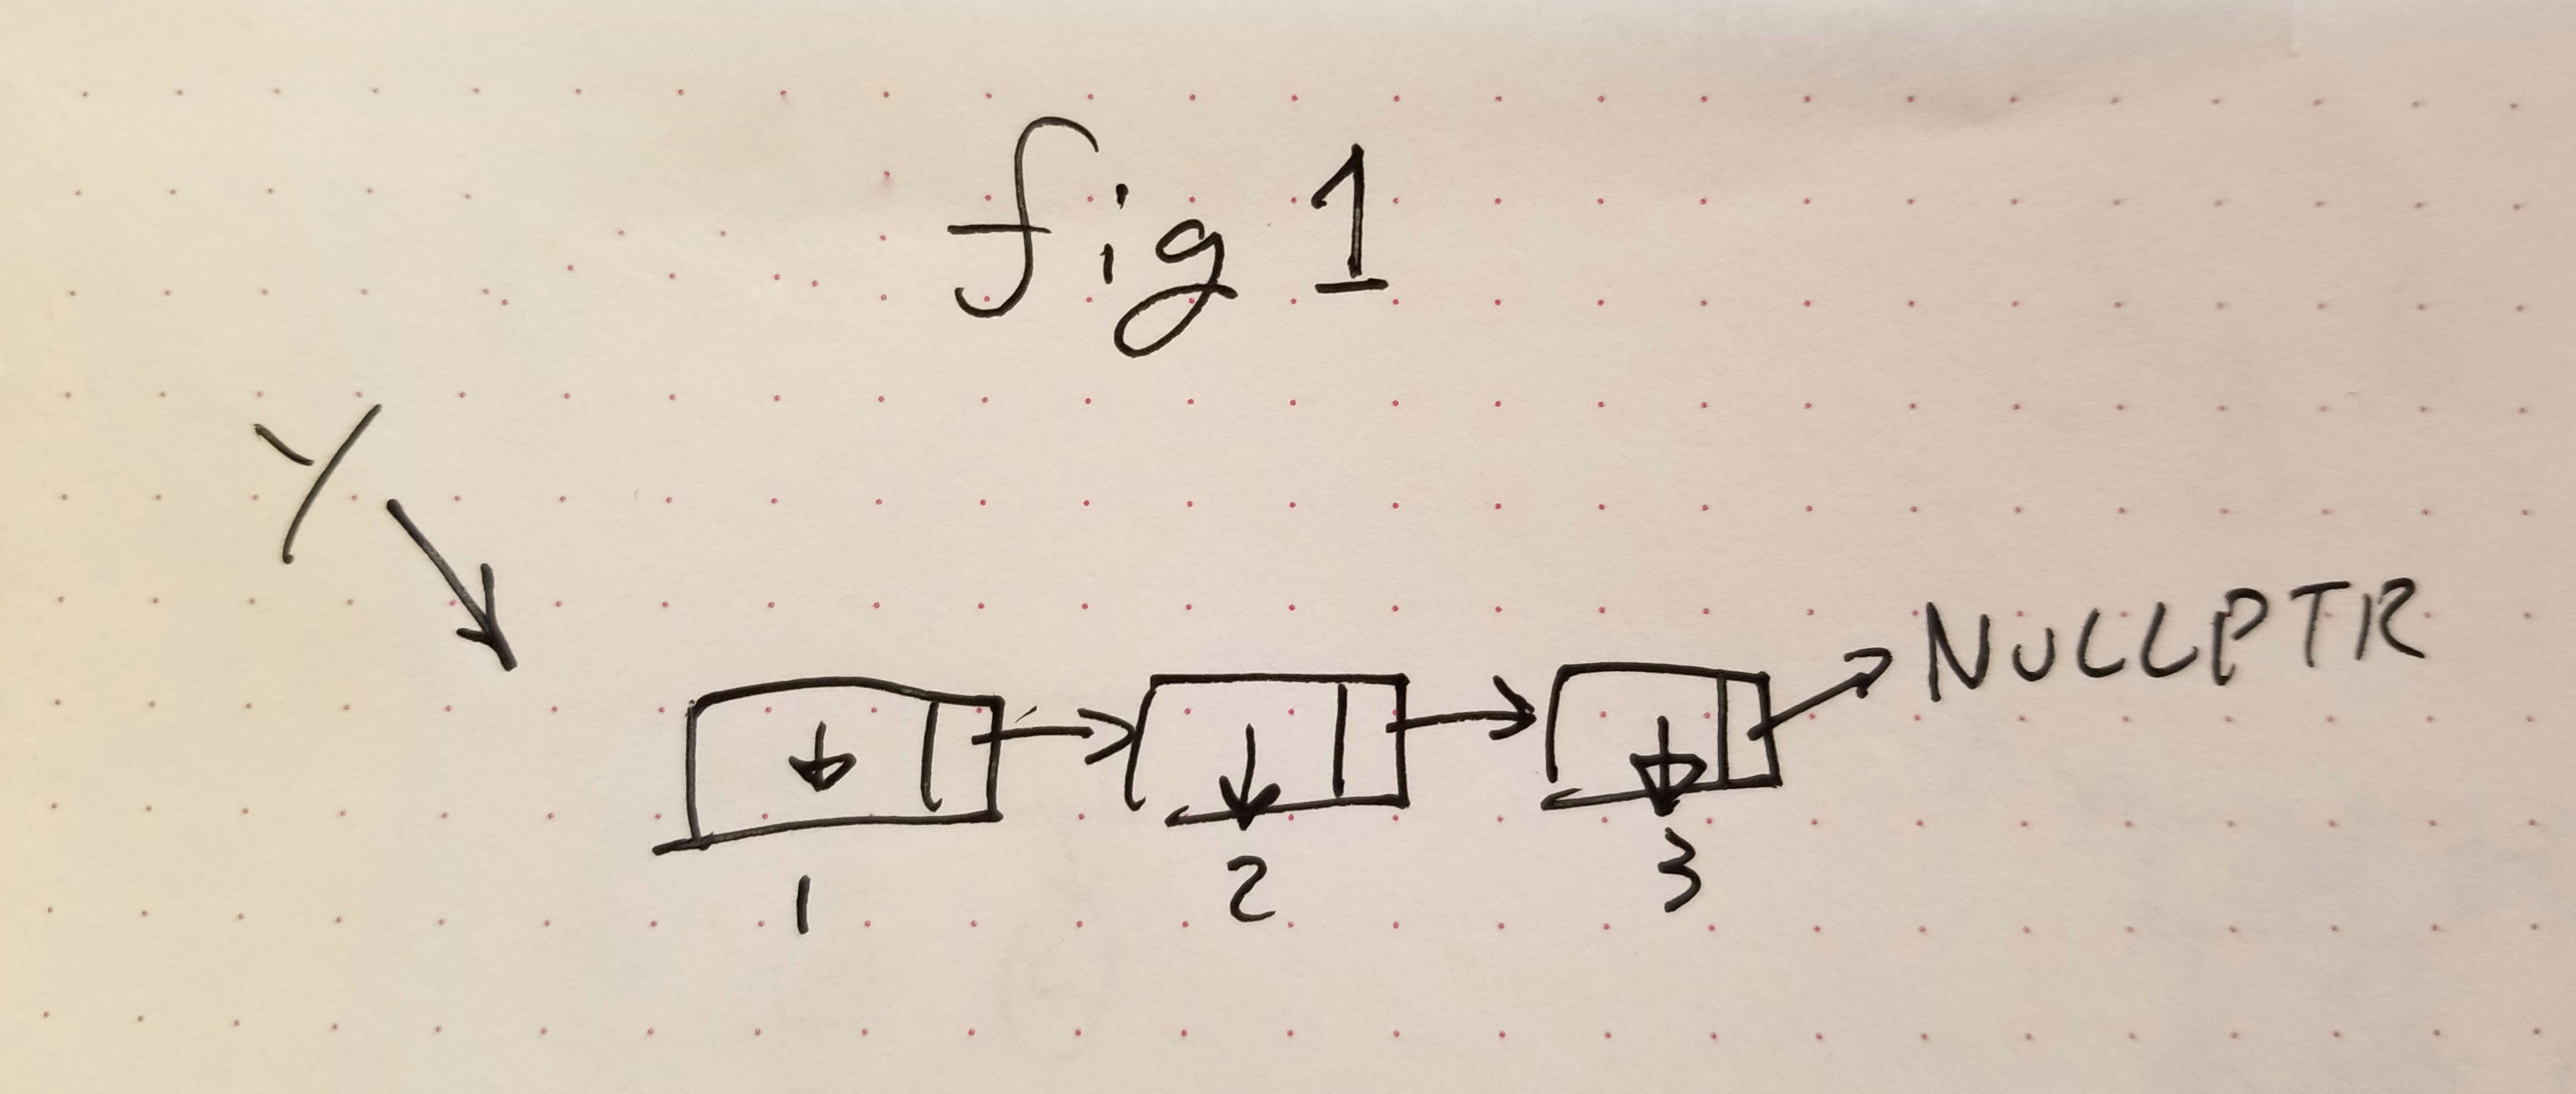 fig 1
Y
NULLPTR
1 2 3